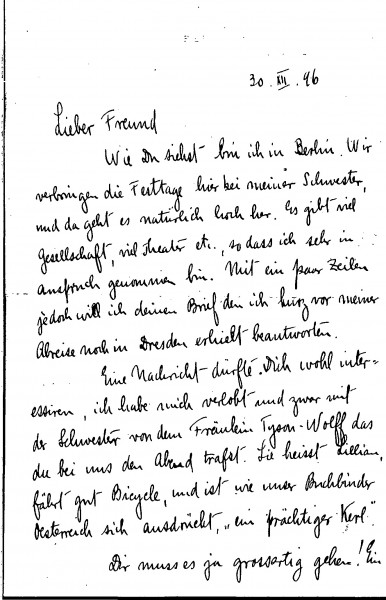 30. XII. 96
Lieber Freund
Wie Du siehst bin ich in Berlin. Wir
verbringen die Festtage hier bei meiner Schwester,
und da geht es natürlich hoch her. Es gibt viel
Gesellschaft, viel Theater etc., so dass ich sehr in
anspruch genommen bin. Mit ein paar Zeilen
jedoch will ich deinen Brief den ich kurz vor meiner
Abreise noch in Dresden erhielt beantworten.
Eine Nachricht dürfte Dich wohl inter=
essiren, ich habe mich verlobt und zwar mit
der Schwester von dem Fräulein Tyson-Wolff das
du bei uns den Abend trafst. Sie heisst Lillian,
fährt gut Bicycle, und ist wie unser Buchbinder
Oesterreich sich ausdrückt, "ein prächtiger Kerl".
Dir muss es ja grossartig gehen! Ein